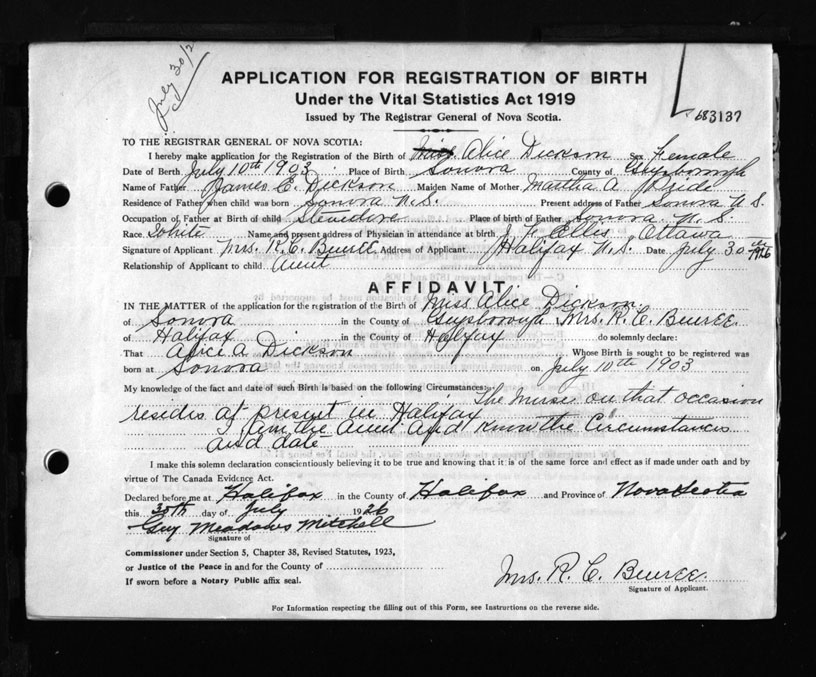 July 30/2
APPLICATION FOR REGISTRATION OF BIRTH
Under the Vital Statistics Act 1919
Issued by The Registrar General of Nova Scotia.
683137
TO THE REGISTRAR GENERAL OF NOVA SCOTIA:
I hereby make application for the Registration of the Birth of Miss Alice Dickson Sex Female
Date of Birth July 10th 1903 Place of Birth Sonora County of Guysborough
Name of Father James E. Dickson Maiden Name of Mother Martha A
Residence of Father when child was born Sonora N.S. Present address of Father Sonora N.S.
Occupation of Father at Birth of child Stevedore Place of birth of Father Sonora N.S.
Race. White Name and present address of Physician in attendance at birth Ellis Ottawa
Signature of Applicant Mrs. R. C. Address of Applicant Halifax N.S. Date July 30th 1926
Relationship of Applicant to child Aunt
AFFIDAVIT
IN THE MATTER of the application for the registration of the Birth of Miss Alice Dickson.
of Sonora in the County of Guysborough, Mrs. R. C.
of Halifax in the County of Halifax do solemnly declare:
That Alice A Dickson Whose Birth is sought to be registered was
born at Sonora on July 10th 1903
My knowledge of the fact and date of such Birth is based on the following Circumstances:
The nurse on that occasion
resides at present in Halifax
I am the aunt and know the Circumstances
and date
I make this solemn declaration conscientiously believing it to be true and knowing that it is of the same force and effect as if made under oath and by
virtue of The Canada Evidence Act.
Declared before me at Halifax in the County of Halifax and Province of Nova Scotia
this 30th day of July 1926
Guy Meadows Mitchell
Signature of
Commissioner under Section 5, Chapter 38, Revised Statutes, 1923,
or Justice of the Peace in and for the County of
If sworn before a Notary Public affix seal.
Mrs. R. C.
Signature of Applicant.
For Information respecting the filling out of this Form, see Instrurtions on the reverse side.